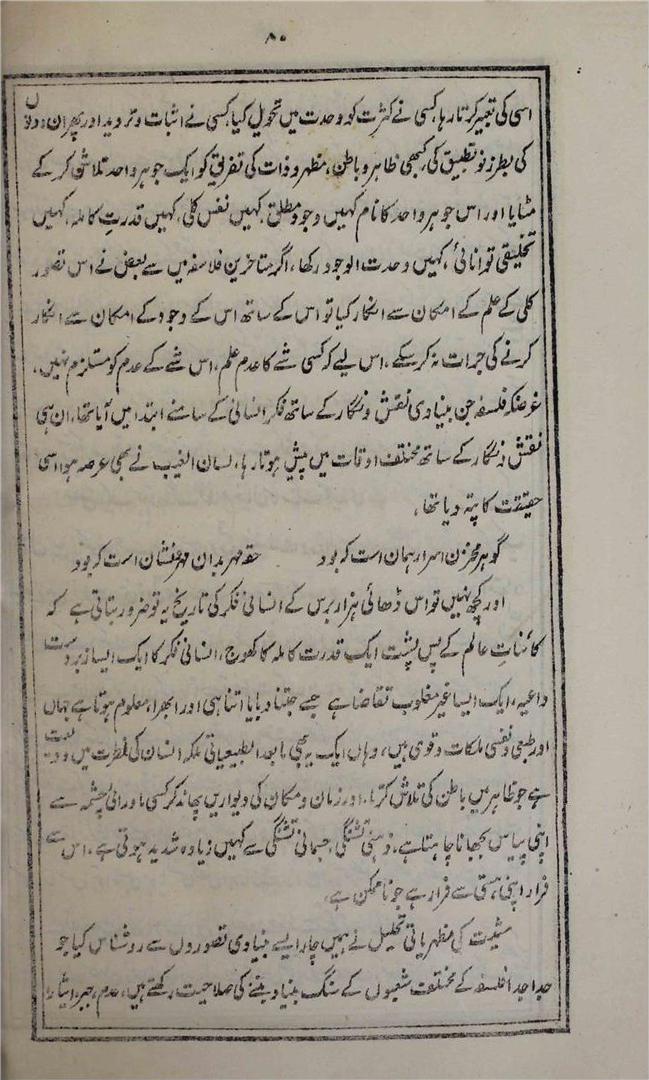 ۸۰
اسی کی تعبیر کرتا رہا، کسی نے کثرت کو وحدت میں تحویل کیا، کسی نے اثبات و تردید اور پھر ان دونوں
کی بطرز نو تطبیق کی، کبھی ظاہر و باطن، مظہر و ذات کی تفریق کو ایک جوہر واحد تلاش کر کے
مٹایا اور اس جوہر واحد کا نام کہیں وجود مطلق، کہیں نفس کلی، کہیں قدرتِ کاملہ، کہیں
تخلیقی توانائی، کہیں وحدت الوجود رکھا، اگر متاخرین فلاسفہ میں سے بعض نے اس تصور
کلی کے علم کے امکان سے انکار کیا تو اس کے ساتھ اس کے وجود کے امکان سے انکار
کرنے کی جرات نہ کر سکے، اس لیے کہ کسی شے کا عدم علم، اس شے کے عدم کو مستلزم نہیں،
غرضکہ فلسفہ جن بنیادی نقش و نگار کے ساتھ فکر انسانی کے سامنے ابتدا میں آیا تھا، ان ہی
نقش و نگار کے ساتھ مختلف اوقات میں پیش ہوتا رہا، لسان الغیب نے بھی عرصہ ہوا اسی
حقیقت کا پتہ دیا تھا،
گوہر مخزن اسرار ہمان است کہ بود حقہ مہر بدان مہر و نشان است کہ بود
اور کچھ نہیں تو اس ڈھائی ہزار برس کے انسانی فکر کی تاریخ یہ تو ضرور بتاتی ہے کہ
کائناتِ عالم کے پس پشت ایک قدرت کاملہ کا کھوج، انسانی فکر کا ایک ایسا زبردست
داعیہ، ایک ایسا غیر مغلوب تقاضا ہے جسے جتنا دبایا اتنا ہی اور ابھرا، معلوم ہوتا ہے جہاں
اور طبعی و نفسی ملکات و قوی ہیں، وہاں ایک یہ بھی مابعد الطبیعیاتی ملکہ انسان کی فطرت میں ودیعت
ہے جو ظاہر میں باطن کی تلاش کرتا، اور زمان و مکان کی دیواریں پھاند کر کسی ماورائی چشمہ سے
اپنی پیاس بجھانا چاہتا ہے، ذہنی تشنگی، جسمانی تشنگی سے کہیں زیادہ شدید ہوتی ہے، اس سے
فرار اپنی ہستی سے فرار ہے جو ناممکن ہے،
مشیت کی مظہریاتی تحلیل نے ہمیں چار ایسے بنیادی تصوروں سے روشناس کیا جو
جدا جدا فلسفہ کے مختلف شعبوں کے سنگ بنیاد بننے کی صلاحیت رکھتے ہیں، عدم، جبر، ایثار،